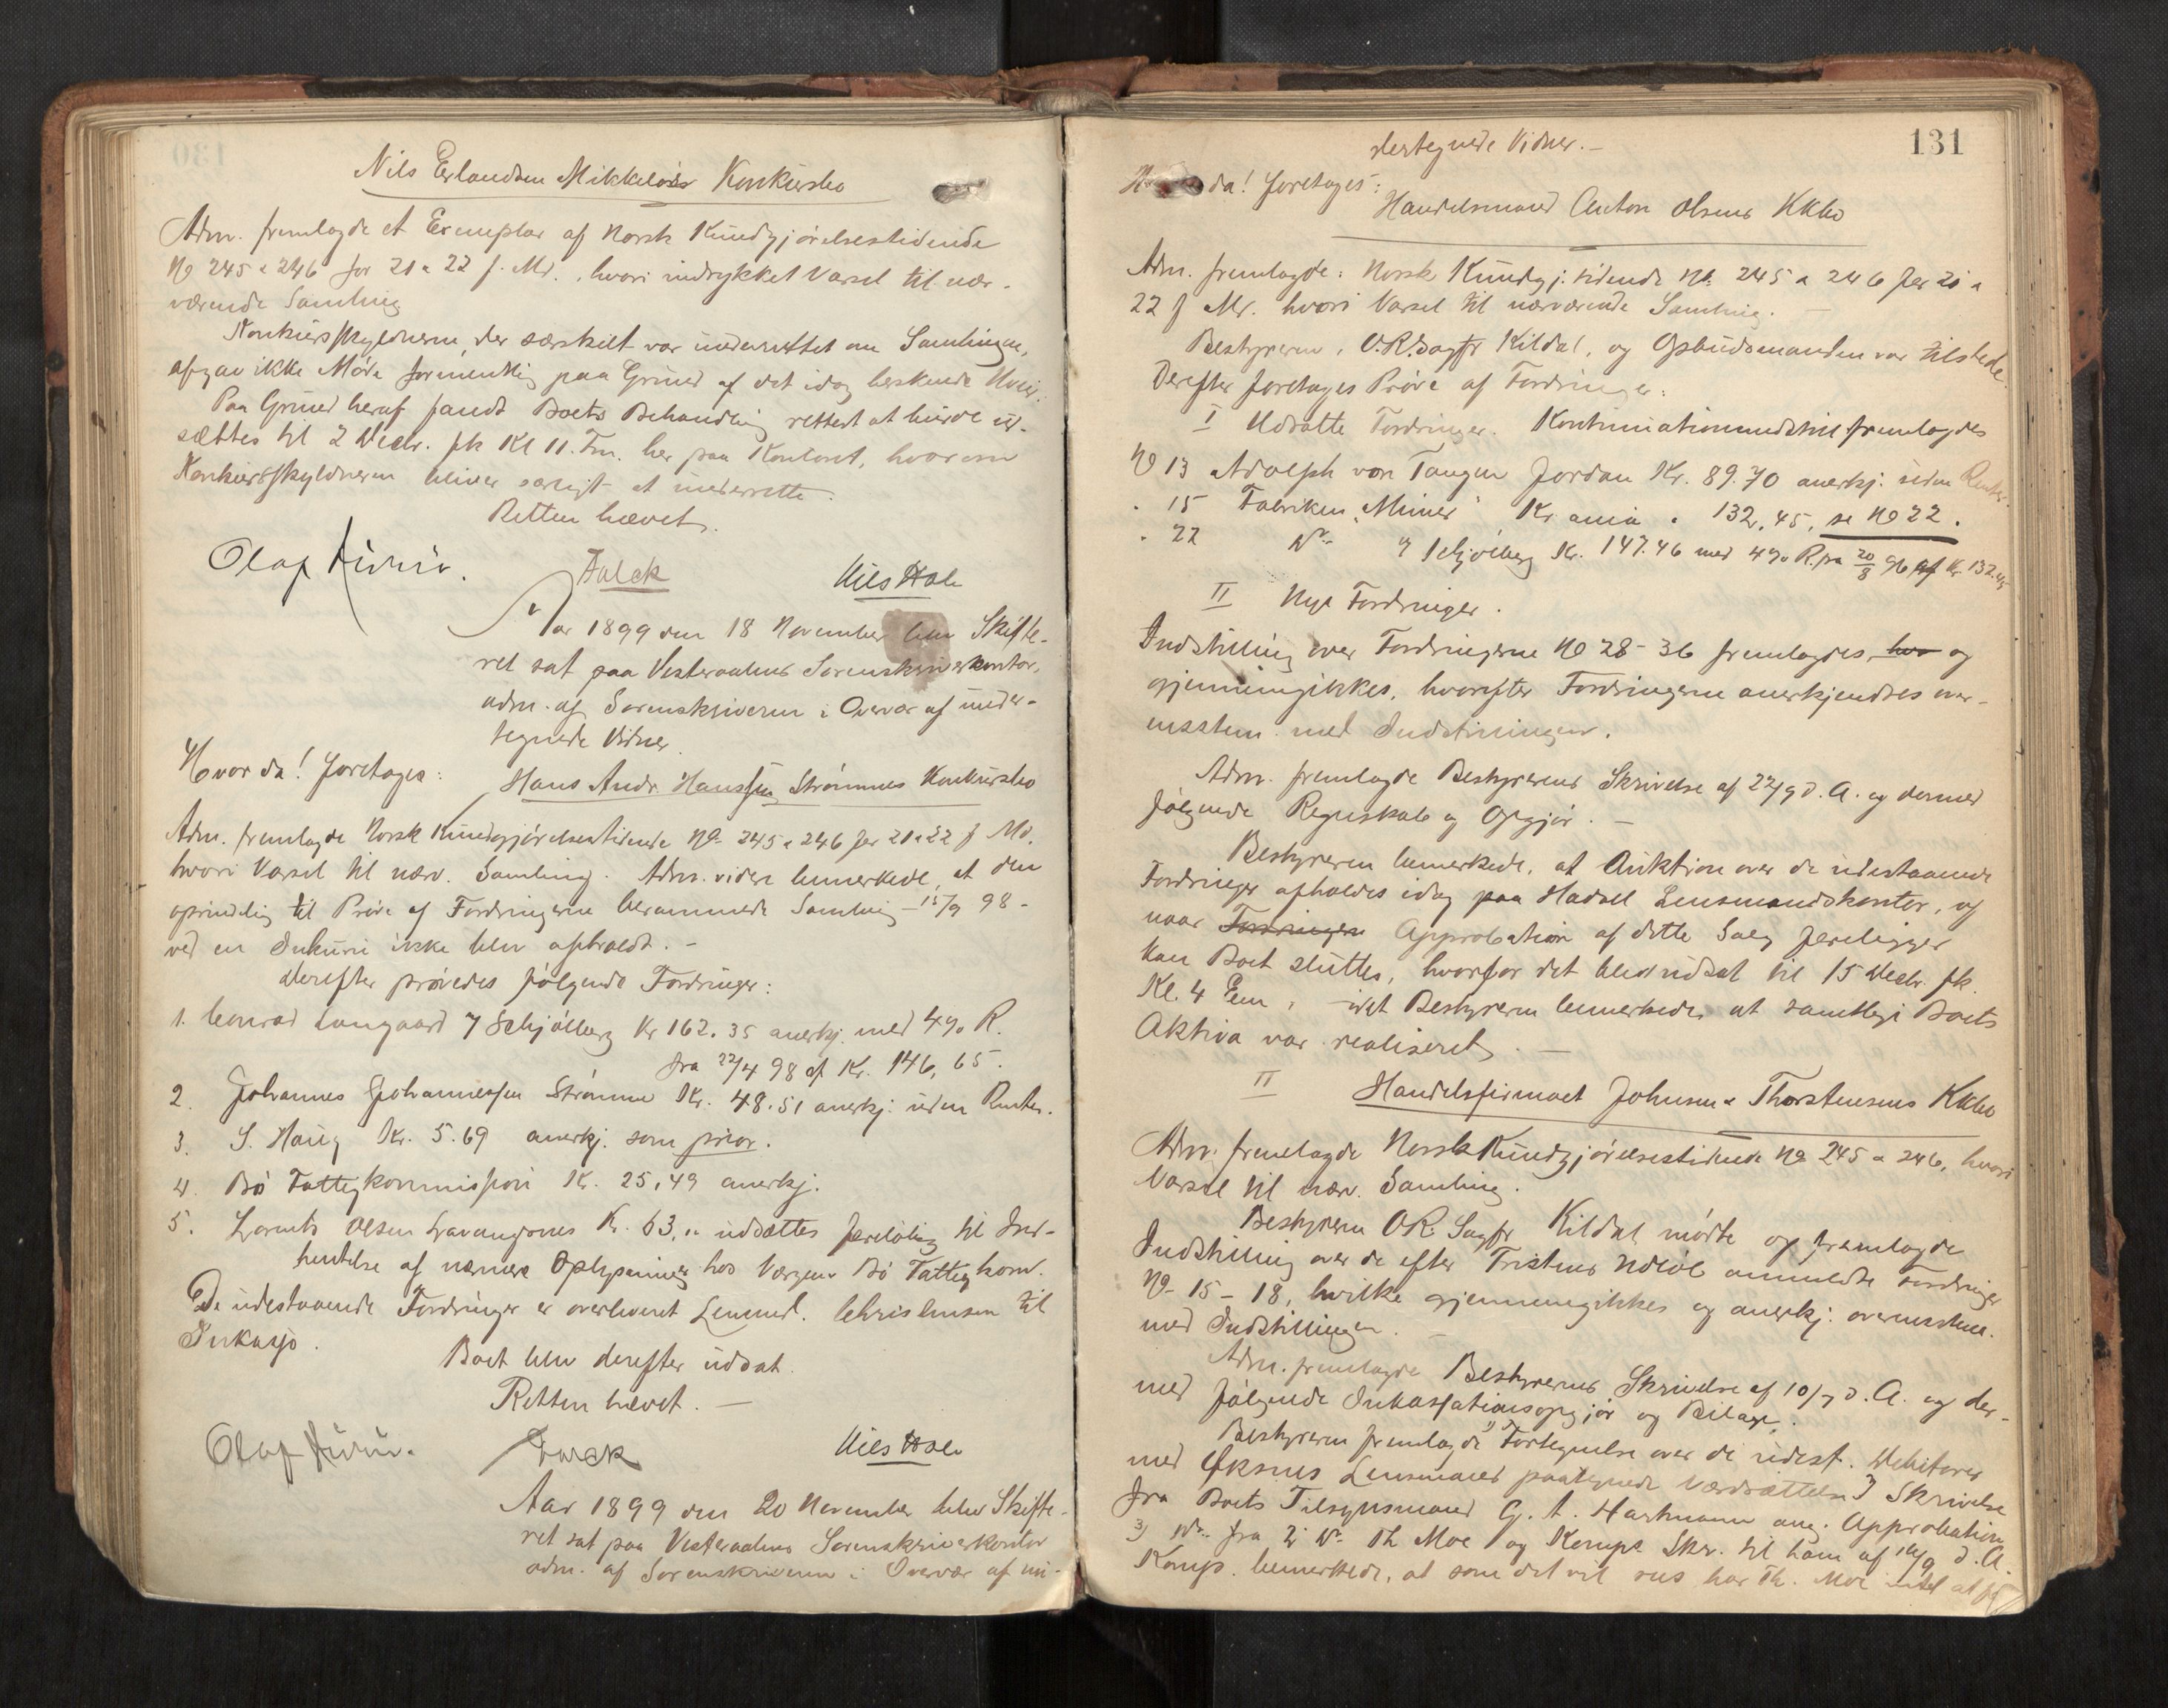 Nils Erlandsen Mikkelsens Konkursbo
Adm. fremlagde et Exemplar af Norsk Kundgjørelsestidende
No 245 & 246 for 21 & 22 f. Md., hvori indrykket Varsel til nær-
værende Samling
Konkursskyldneren, der særskilt var underrettet om Samlingen,
afgav ikke Møde formentlig paa Grund af det idag herskende Uveir.
Paa Grund heraf fandt Boets Behandling rettest at burde ud-
sættes til 2 Decbr. fk Kl 11. Fm. her paa Kontoret, hvorom
Konkursskyldneren bliver særligt at underrette.
Retten hævet.
Olaf
Falck
Nils Hole
Aar 1899 den 18 November blev Skifte-
ret sat paa Vesteraalens Sorenskriverkontor,
adm. af Sorenskriveren i Overvær af under-
tegnede Vidner.
Hvor da! foretoges:
Hans Andr. Hanssen Strømmes Konkursbo
Adm. fremlagde Norsk Kundgjørelsestidende No 245 & 246 for 21 & 22 f Md.
hvori Varsel til nærv. Samling. Adm. videre bemerkede, at den
oprindelig til Prøve af Fordringerne berammede Samling - 15/9 98 -
ved en Inkurie ikke blev afholdt. -
Derefter prøvedes følgende Fordringer:
1. Conrad Langaard 7 Schjølberg Kr 162.35 anerkj. med 4% R.
fra 22/4 98 af Kr. 146,65.
2. Johannes Johannessen Strømme Kr. 48.51 anerkj. uden Renter.
3. S. Haug Kr. 5.69 anerkj. som prior.
4. Bø Fattigkommission Kr. 25,49 anerkj.
5. Lorents Olsen Kr. 63, " udsættes foreløbig til Ind-
hentelse af nærmere Oplysninger hos Værgen Bø Fattigkom.
De udestaaende Fordringer er overleveret Lensmd. Christensen til
Inkasso.
Boet blev derefter udsat.
Retten hævet. -
Olaf
Falck
Nils Hole
Aar 1899 den 20 November blev Skifte-
ret sat paa Vesteraalens Sorenskriverkontor
adm. af Sorenskriveren i Overvær af un-
131
dertegnede Vidner. -
da! foretoges:
Handelsmand Anton Olsens Kkbo
Adm. fremlagde: Norsk Kundgj. tidende No. 245 & 246 for 21 &
22 f Md. hvori Varsel til nærværende Samling. -
Bestyreren, O.R.Sagfr Kildal, og Opbudsmanden var tilstede.
Derefter foretoges Prøve af Fordringer:
I Udsatte Fordringer. fremlagdes
No 13 Adolph von Tangen Jordan Kr. 89.70 anerkj. uden Renter.
" 15 Fabriken "Mimer" Kr.ania " 132,45, se No 22.
" 22 Do 7 Schjølberg Kr. 147.46 med 4% R. fra 20/8 96 af Kr. 132.45
II Nye Fordringer.
Indstilling over Fordringerne No 28-36 fremlagdes, hvo og
gjennemgikkes, hvorefter Fordringerne anerkjendtes over-
ensstem. med Indstillingen.
Adm. fremlagde Bestyrerens Skrivelse af 22/9 d. A. og dermed
følgende Regnskab og Opgjør. -
Bestyreren bemerkede, at Auktion over de udestaaende
Fordringer afholdes idag paa Hadsel Lensmandskontor, og
naar Fordringen Approbation af dette Salg foreligger
kan Boet sluttes, hvorfor det blev udsat til 15 Decbr. fk.
Kl. 4 Em, idet Bestyreren bemerkede, at samtlige Boets
Aktiva var realiseret. -
II Handelsfirmaet Johnsen & Thorstensens Kkbo
Adm. fremlagde Norsk Kundgjørelsestidende No 245 & 246, hvori
Varsel til nærv. Samling.
Bestyreren OR. Sagfr Kildal mødte og fremlagde
Indstilling over de efter Fristens Udløb anmeldte Fordringer
No. 15-18, hvilke gjennemgikkes og anerkj. overensstem.
med Indstillingen. -
Adm. fremlagde Bestyrerens Skrivelse af 10/7 d. A. og der-
med følgende Inkassationsopgjør og Bilage.
Bestyreren fremlagde 1) Fortegnelse over de udest. Debitorer
med Øksnes Lensmand paategnede Værdsættelse 2) Skrivelse
fra Boets Tilsynsmand G. A. Hartmann ang. Approbation
3) Do fra Do Th Moe og Komps Skr. til ham af 16/9 d. A.
Komp. bemerkede, at som det vil sees har Th. Moe intet at